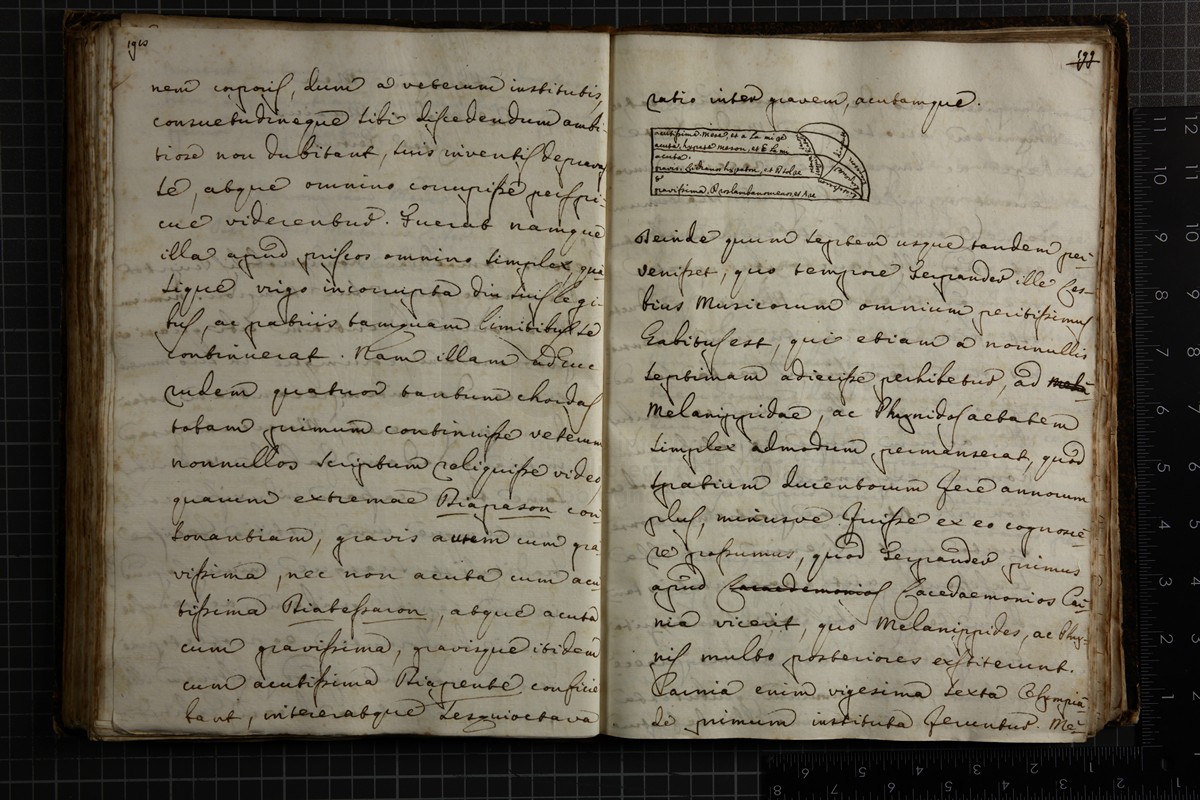 nem corporis, dum a veterum institutis,
consuetudineque sibi discedendum ambi-
tiose non dubitant, suis inventis deprava
sse, atque omnino corrupisse perspi-
cue viderentur. Fuerat namque
illa apud priscos omnino simplex, qua
sique virgo incorrupta diu suis legi-
bus, ac patriis tamquam limitibus se
continuerat. Nam illam adhuc
rudem quatuor tantum chordas
totam primum continuisse veterum
nonnullos scriptum reliquisse video
quarum extremae Diapason con
sonantiam, gravis autem cum gra
vissima, nec non acuta cum acu
tissima Diatessaron, atque acuta
cum gravissima, gravisque itidem
cum acutissima Diapente conficie
bant, intereratque sesquioctava
199
ratio inter gravem, acutamque.
acutissima Mese, et a la mi re
acuta hypate meson, et E la mi
acuta.
gravis Lichanos hypaton, et D sol re
gravissima, Proslambanomenos, et A re
Deinde quum septem usque tandem per-
venisset, quo tempore Terpander ille Les-
bius Musicorum omnium peritissimus
habitus est, qui etiam a nonnullis
septimam adiecisse perhibetur, ad
Melanippidae, ac Phrynidos aetatem
simplex admodum permanserat, quod
spatium ducentorum fere annorum
plus, minusve fuisse ex eo cognosce-
re possumus, quod Terpander primus
apud Lacedemonios Lacedaemonios Car-
nia vicerit, quo Melanippides, ac Phry-
nis multo posteriores exstiterunt.
Carnia enim vigesima sexta Olympia
de primum instituta feruntur. Me-